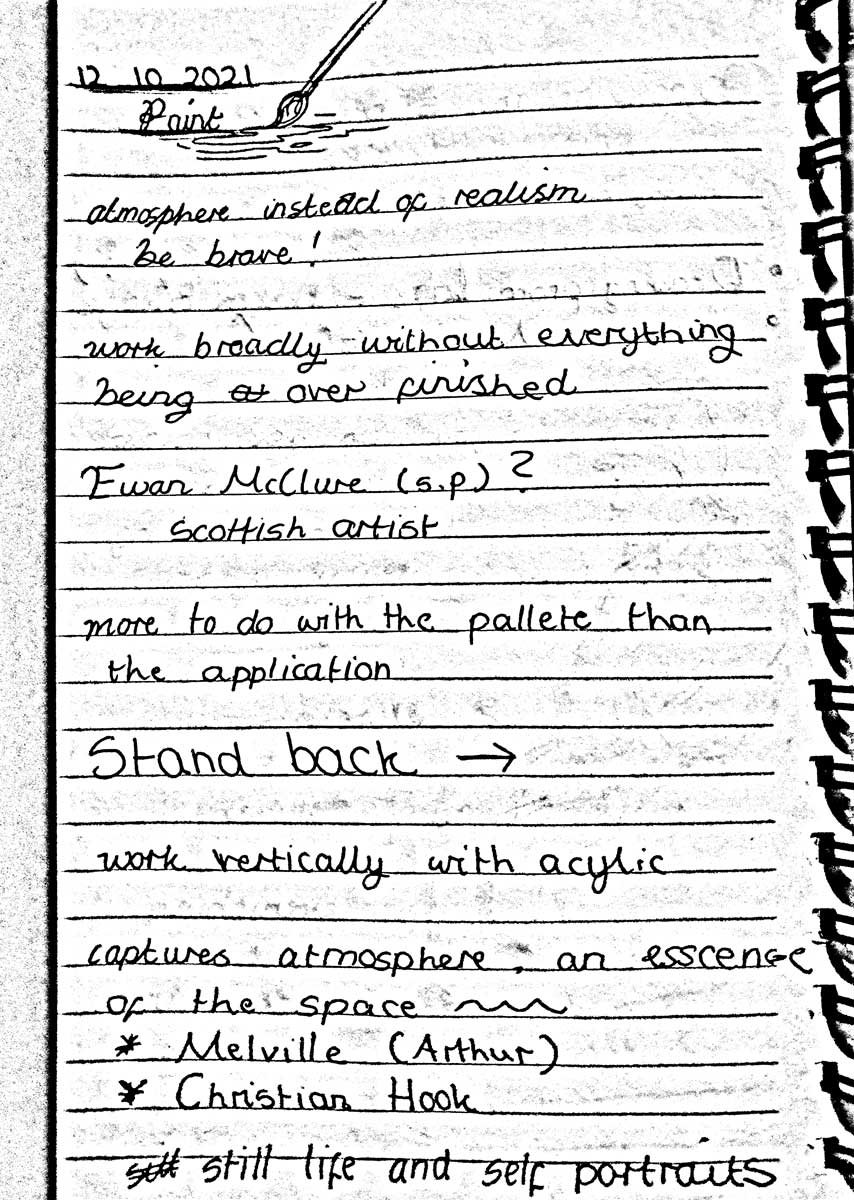 12 10 2021
Paint
atmosphere instead of realism
be brave!
work broadly without everything
being over finished
Ewan McClure (s.p)?
scottish artist
more to do with the pallete than
the application
Stand back →
work vertically with acylic
captures atmosphere, an esscence
of the space
* Melville (Arthur)
* Christian Hook
still life and self portraits